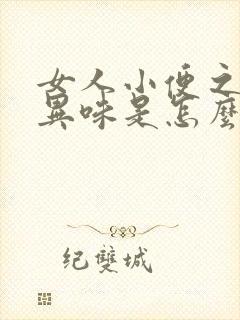 女人小便之
異味是怎麼
纪雙城